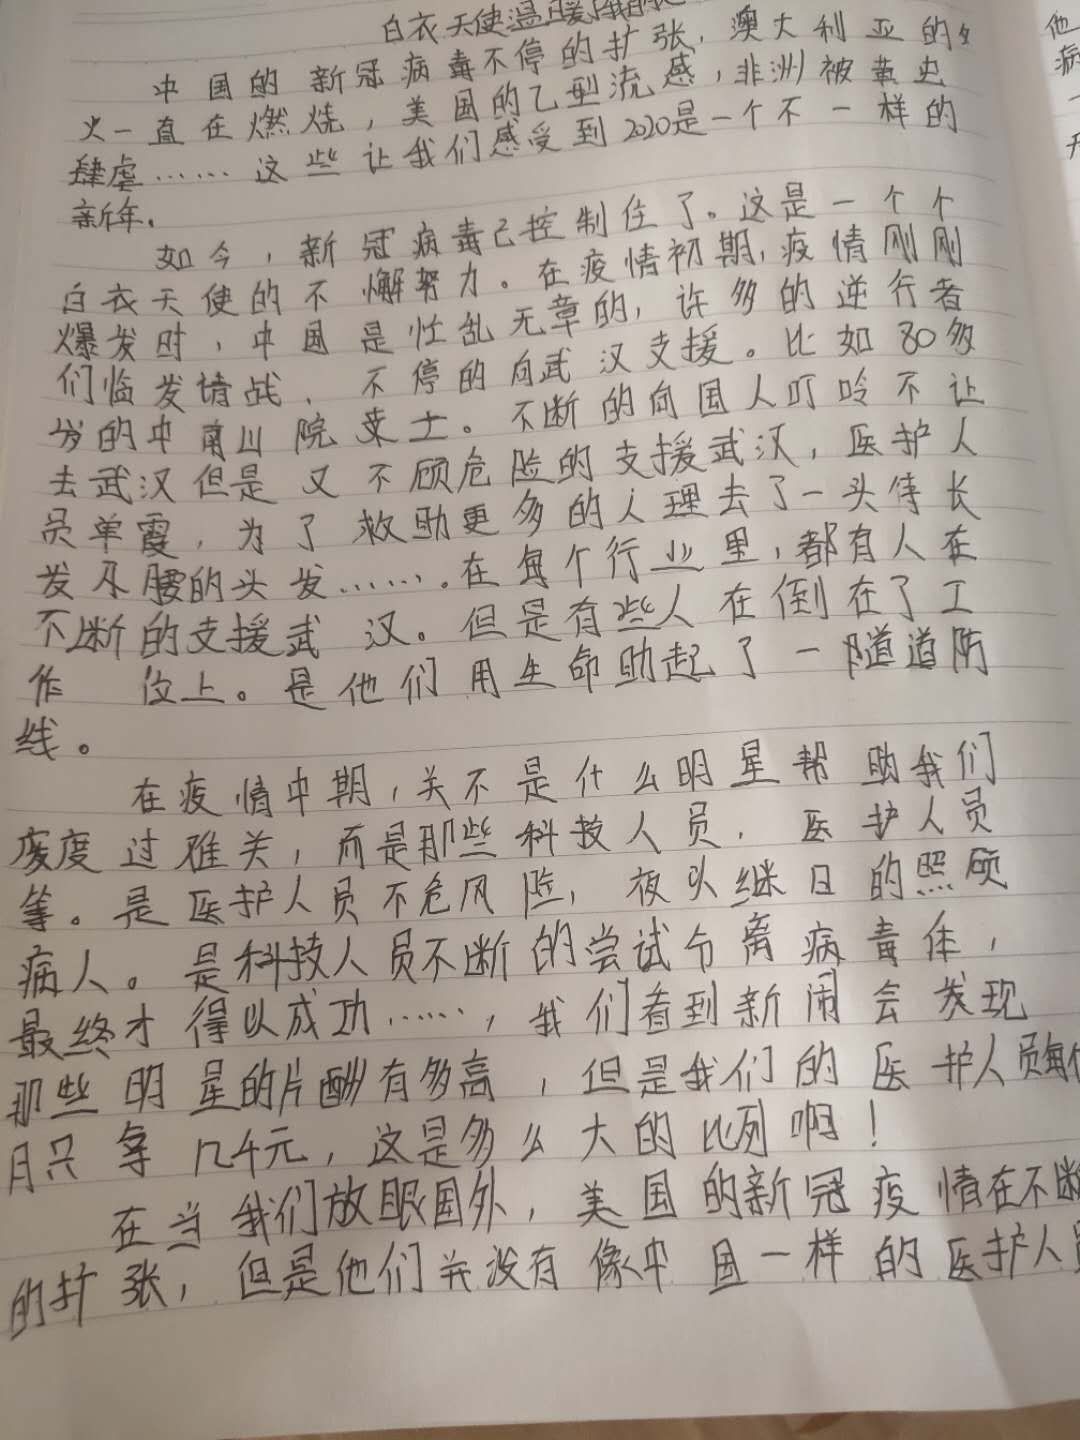 白衣天使温暖
中国的新冠病毒不停的扩张，澳大利亚的
火一直在燃烧，美国的乙型流感，非洲被蝗虫
肆虐……这些让我们感受到2020是一个不一样的
新年。
如今，新冠病毒已控制住了。这是一个个
白衣天使的不懈努力。在疫情初期，疫情刚刚
爆发时，中国是忙乱无章的，许多的逆行者
们临发请战，不停的向武汉支援。比如80多
岁的中南山院来士。不断的向国人叮呤不让
去武汉但是又不顾危险的支援武汉，医护人
员单霞，为了救助更多的人理去了一头侍长
发及腰的头发……在每个行业里，都有人在
不断的支援武汉。但是有些人在倒在了工
作位上。是他们用生命助起了一隧道防
线。
在疫情中期，关不是什么明星帮助我们
废度过难关，而是那些科技人员，医护人员
等。是医护人员不危风险，夜以继日的照顾
病人。是科技人员不断的尝试分离病毒体，
最终才得以成功……，我们看到新闻会发现
那些明星的片酬有多高，但是我们的医护人员每
月只拿几千元，这是多么大的比列啊！
在当我们放眼国外，美国的新冠疫情在不断
的扩张，但是他们并没有像中国一样的医护人员
他
病